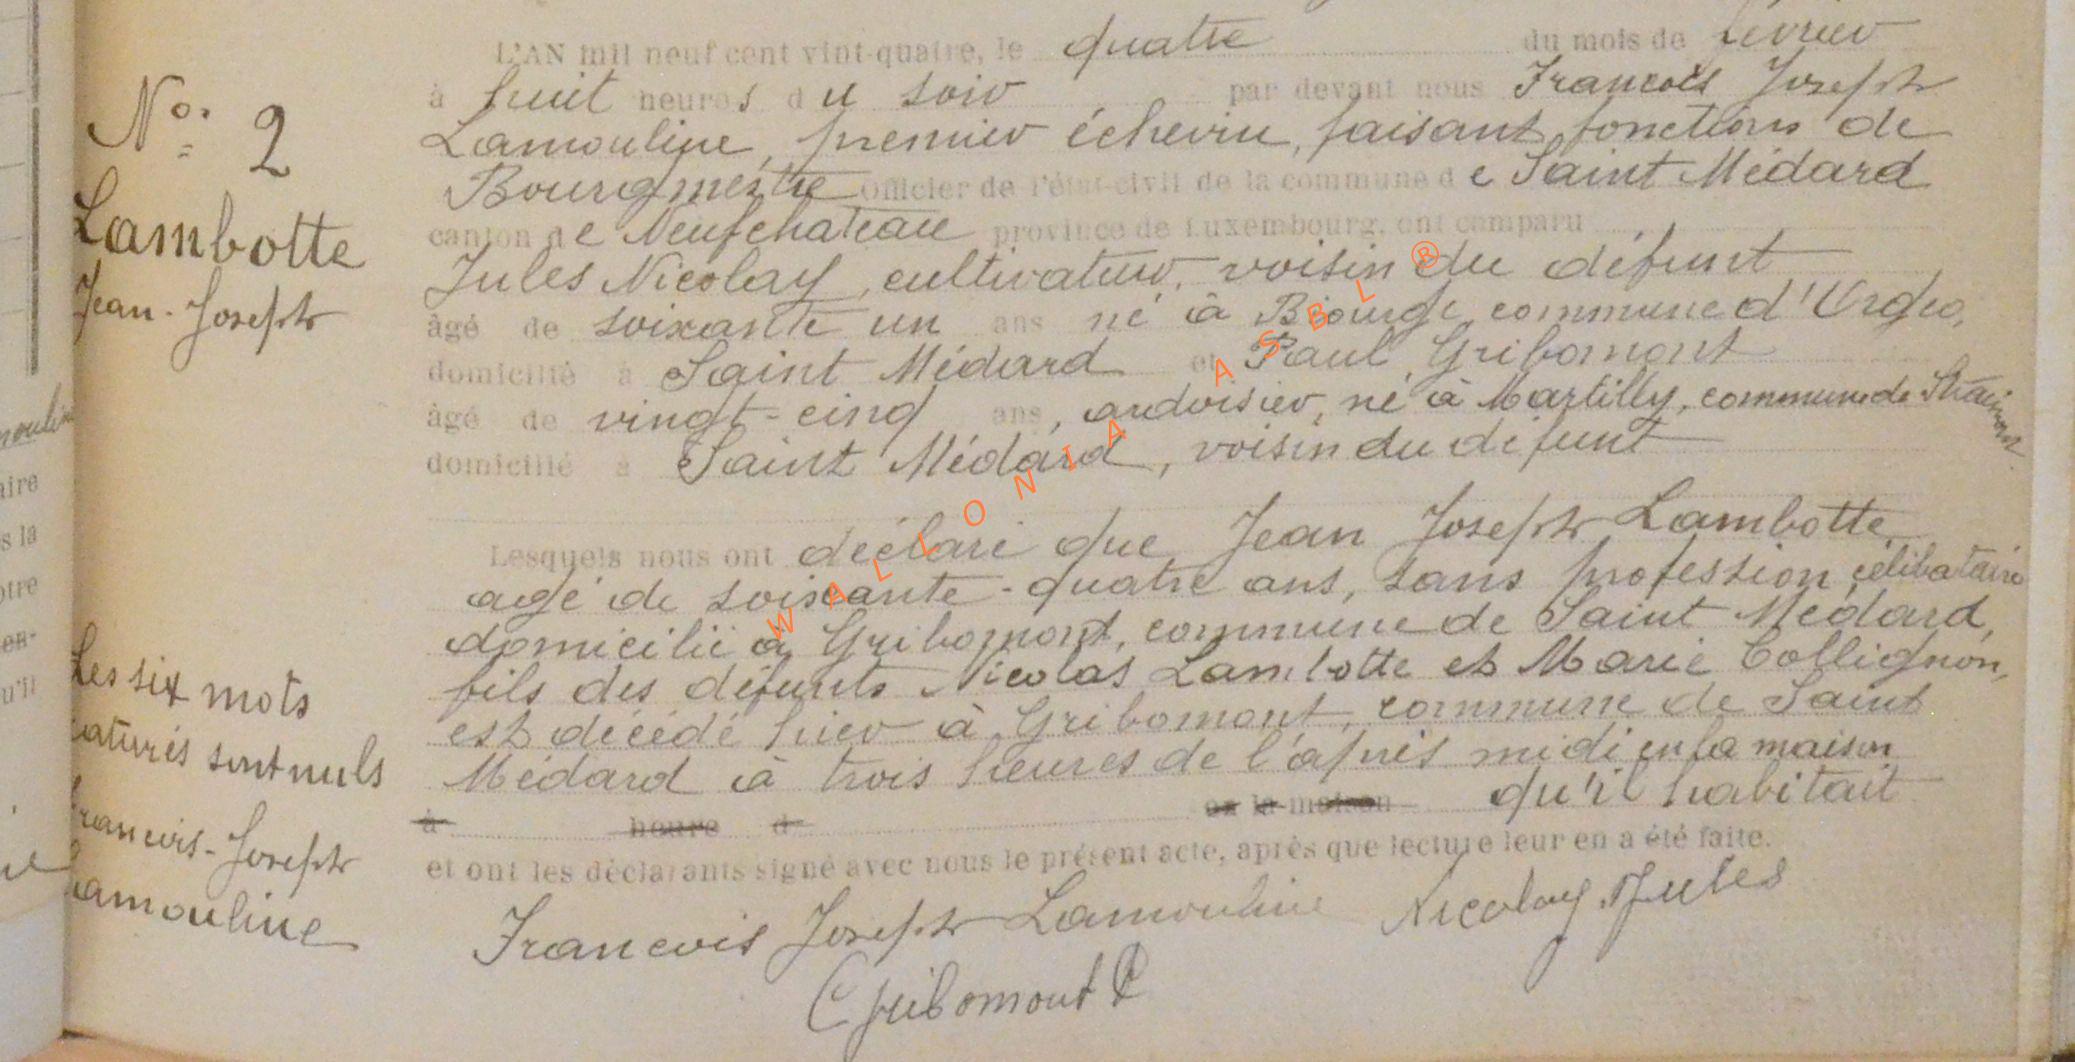 No. 2
Lambotte
Jean-Joseph
L'AN mil neuf cent vint-quatre, le quatre du mois de février
à huit heures du soir par devant nous Francois Joseph
Lamouline, premier échevin, faisant fonctions de
Bourgmestre officier de l'état-civil de la commune de Saint Médard
canton de Neufchateau province de Luxembourg, ont comparu
Jules Nicolay, cultivateur, voisin du défunt
âgé de soixante un ans né à Biourge commune d'Orgeo,
domicilié à Saint Médard et Paul Gribomont
âgé de vingt-cinq ans, ardoisier, né à Martilly, commune de Straimont
domicilié à Saint Médard, voisin du défunt
Lesquels nous ont déclaré que Jean Joseph Lambotte
agé de soixante-quatre ans, sans profession, célibataire
domicilié à Gribomont, commune de Saint Médard,
fils des défunts Nicolas Lambotte et Marie Collignon,
est décédé hier à Gribomont, commune de Saint
Médard à trois heures de l'après midi en la maison
à heure d en la maison qu'il habitait
et ont les déclarants signé avec nous le présent acte, après que lecture leur en a été faite.
Francois Joseph Lamouline Nicolay Jules
Gribomont P
Les six mots
raturés sont nuls
Francois-Joseph
Lamouline
WALLONIA ASBL ®
moulin
aire
s la
otre
en-
u'il